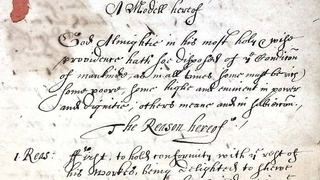 A Modell hereof
God Almightie in his most holy & wise
providence hath soe disposed of ye Condition
of mankinde, as in all times some must be rich
some poore, some highe and eminent in power
and dignitie; others meane and in subieccion.
The Reason hereof
1 Reas: first, to hold conformity with ye rest of
his workes, being delighted to shewe